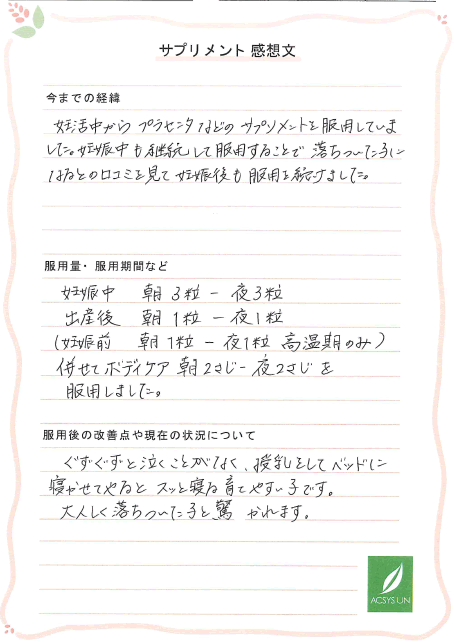 サプリメント 感想文
今までの経緯
妊活中から プラセンタなどの サプリメントを服用していま
した。妊娠中も継続して服用することで 落ちついた子に
なるとの口コミを見て 妊娠後も 服用を続けました。
服用量・服用期間など
妊娠中 朝3粒 − 夜3粒
出産後 朝1粒 − 夜1粒
(妊娠前 朝1粒 − 夜1粒 高温期のみ)
併せて ボディケア 朝2さじ − 夜2さじ を
服用しました。
服用後の改善点や現在の状況について
ぐずぐずと泣くことがなく、授乳をして ベッドに
寝かせてやると スッと寝る 育てやすい子です。
大人しく落ちついた子と驚かれます。
ACSYS UN